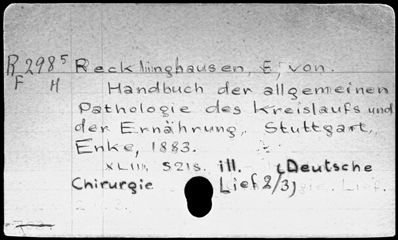 R 298⁵ Recklinghausen, E, von.
F H Handbuch der allgemeinen
Pathologie des Kreislaufs und
der Ernährung, Stuttgart,
Enke, 1883.
XLIII, 521s. ill. (Deutsche
Chirurgie Lief 2/3)